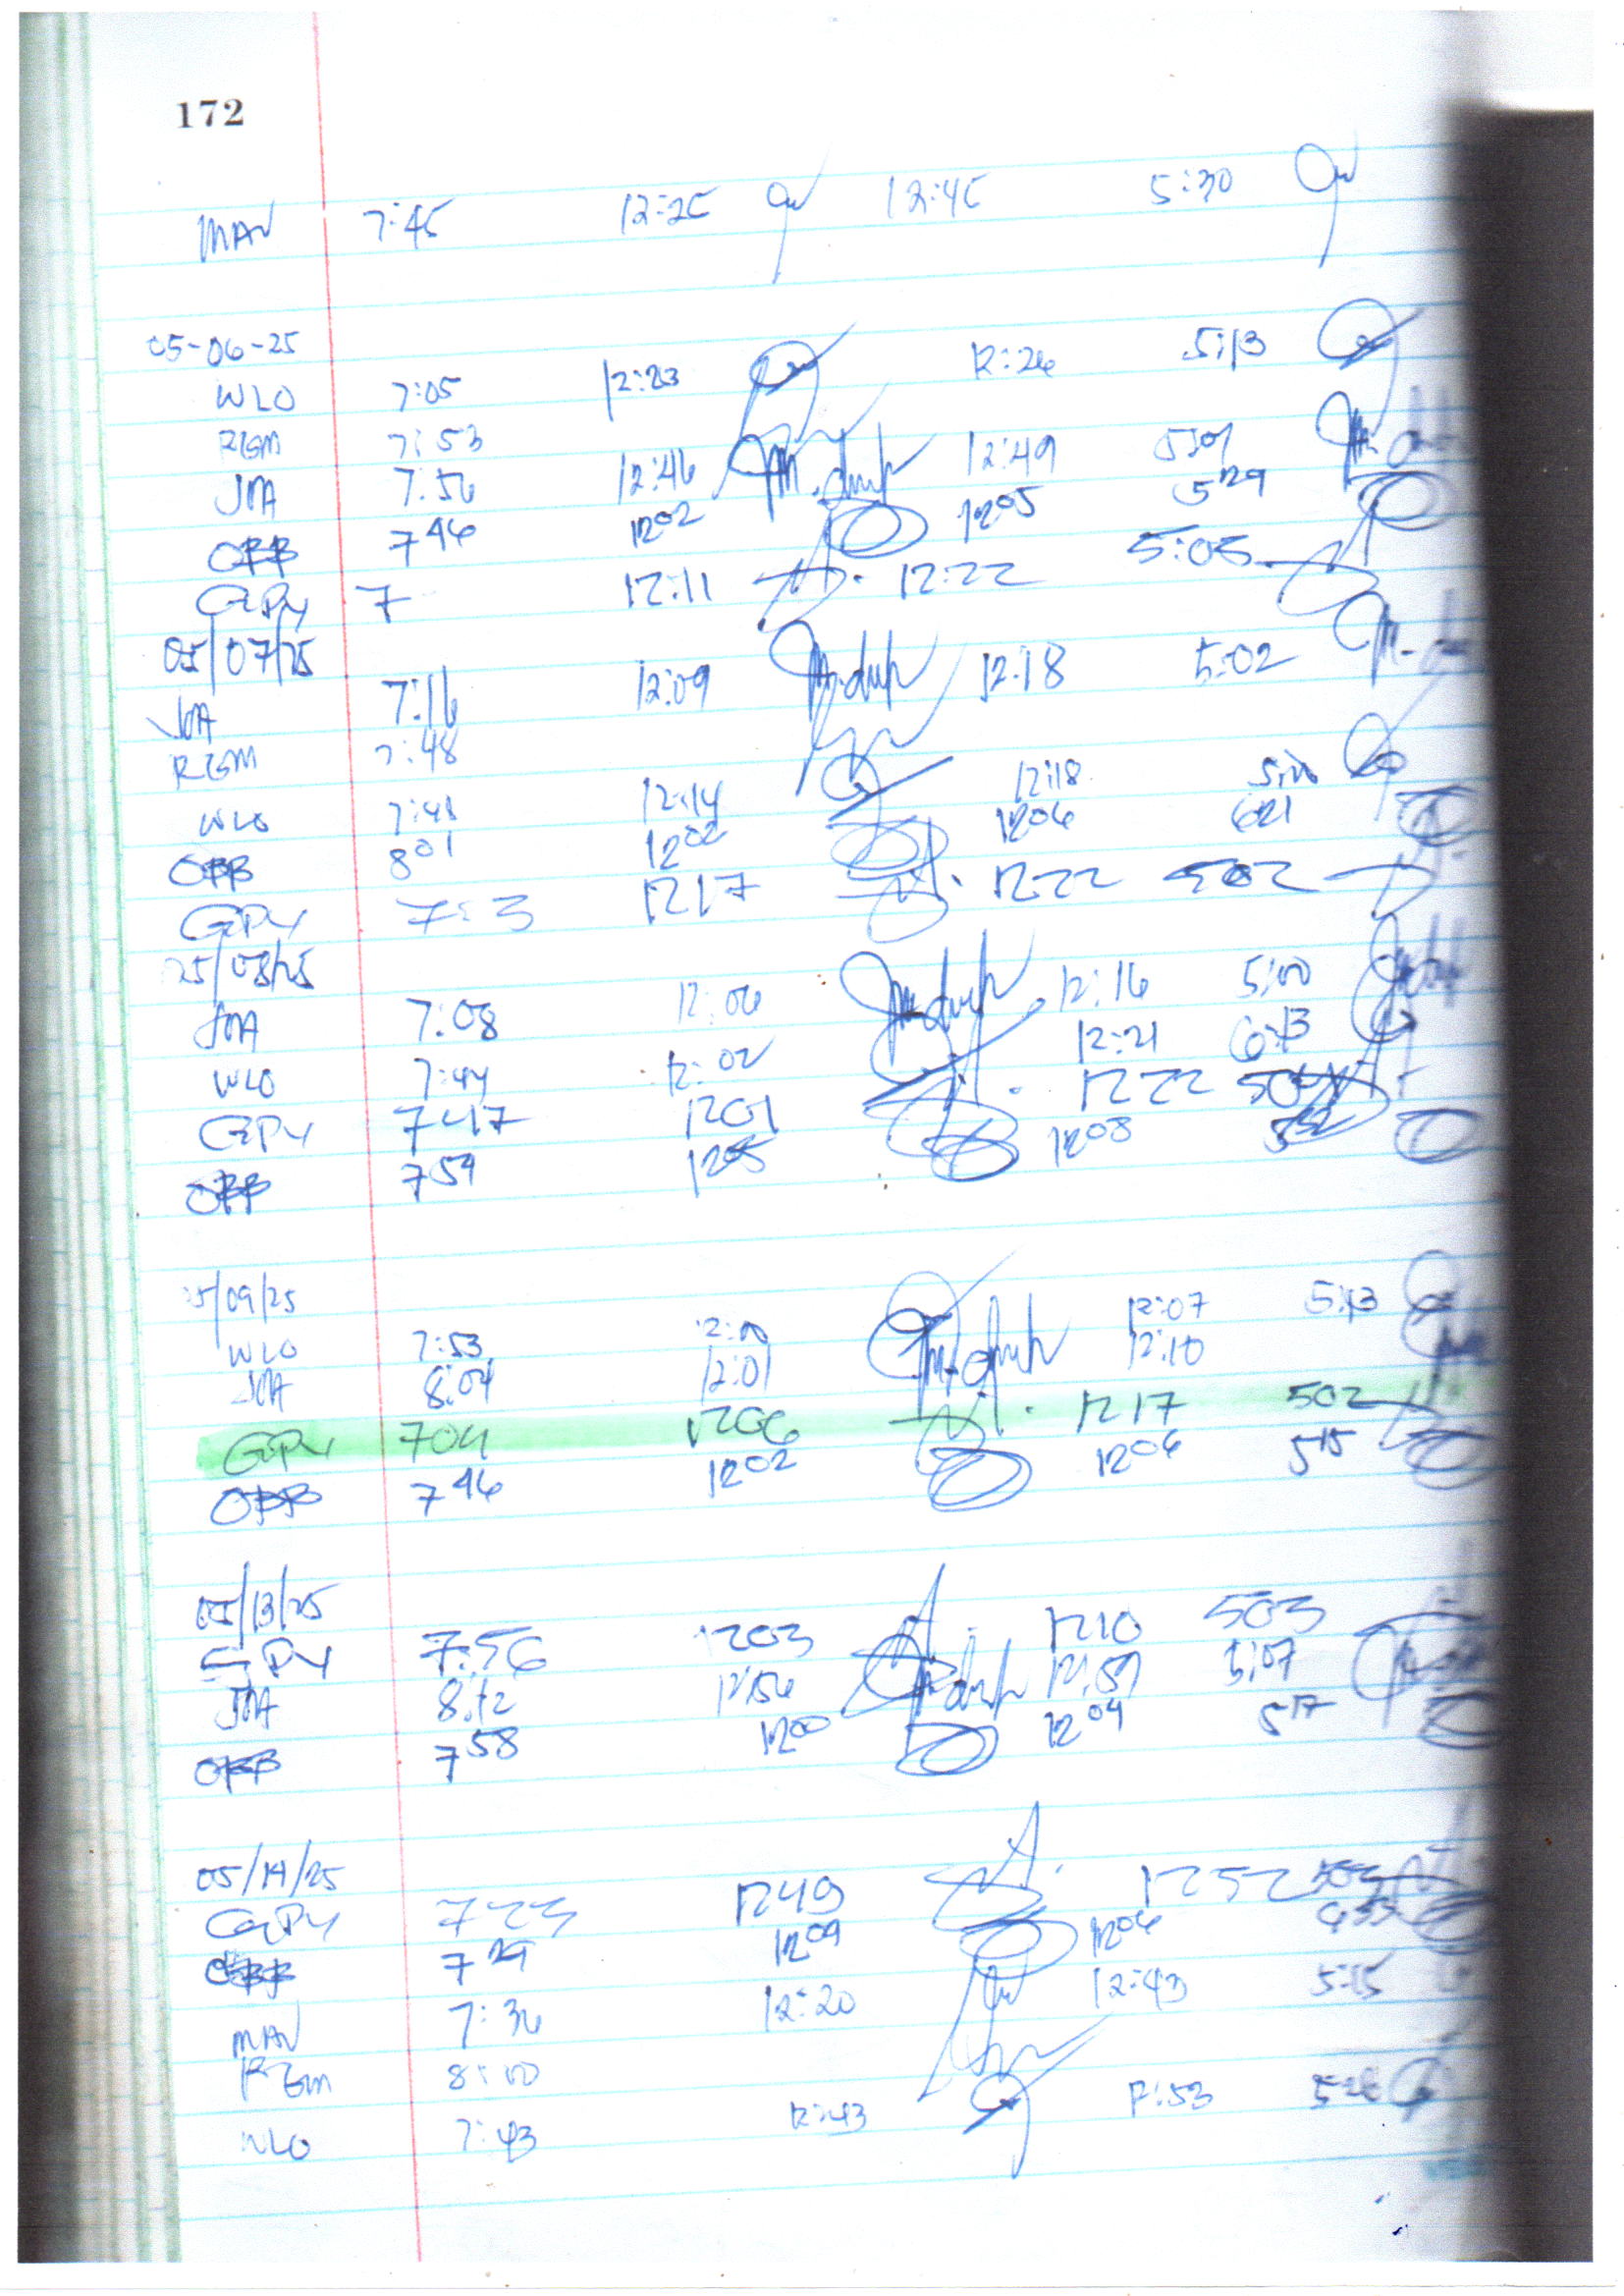 172
MAV 7:45 12:25 12:45 5:30
05-06-25
WLO 7:05 12:23 12:26 5:13
RGM 7:53
JMA 7:56 12:46 12:49 5:01
OBB 7 46 12 02 12 05 5 29
GPY 7 12:11 12:22 5:05
05/07/25
JMA 7:16 12:09 12:18 5:02
RGM 7:48
WLO 7:48 12:14 12:18 5:00
OBB 8 01 12 02 12 06 6 21
GPY 7:3 1217 1222 502
05/08/25
JMA 7:08 12:06 12:16 5:00
WLO 7:44 12:02 12:21 6:13
GPY 7 47 1201 1222
OBB 7 59 12 05 12 08 5 52
05/09/25
WLO 7:53 12:00 12:07 5:13
JMA 8:04 12:01 12:10
GPY 704 1206 1217 502
OBB 7 46 12 02 12 06 5 15
05/13/25
GPY 7:56 1203 1210 503
JMA 8:12 12:56 12:59 5:07
OBB 7 58 12 00 12 04 5 17
05/14/25
GPY 723 1249 1252 502
OBB 7 29 12 09 12 06
MAV 7:36 12:20 12:43 5:15
RGM 8:00
WLO 7:43 12:43 12:53